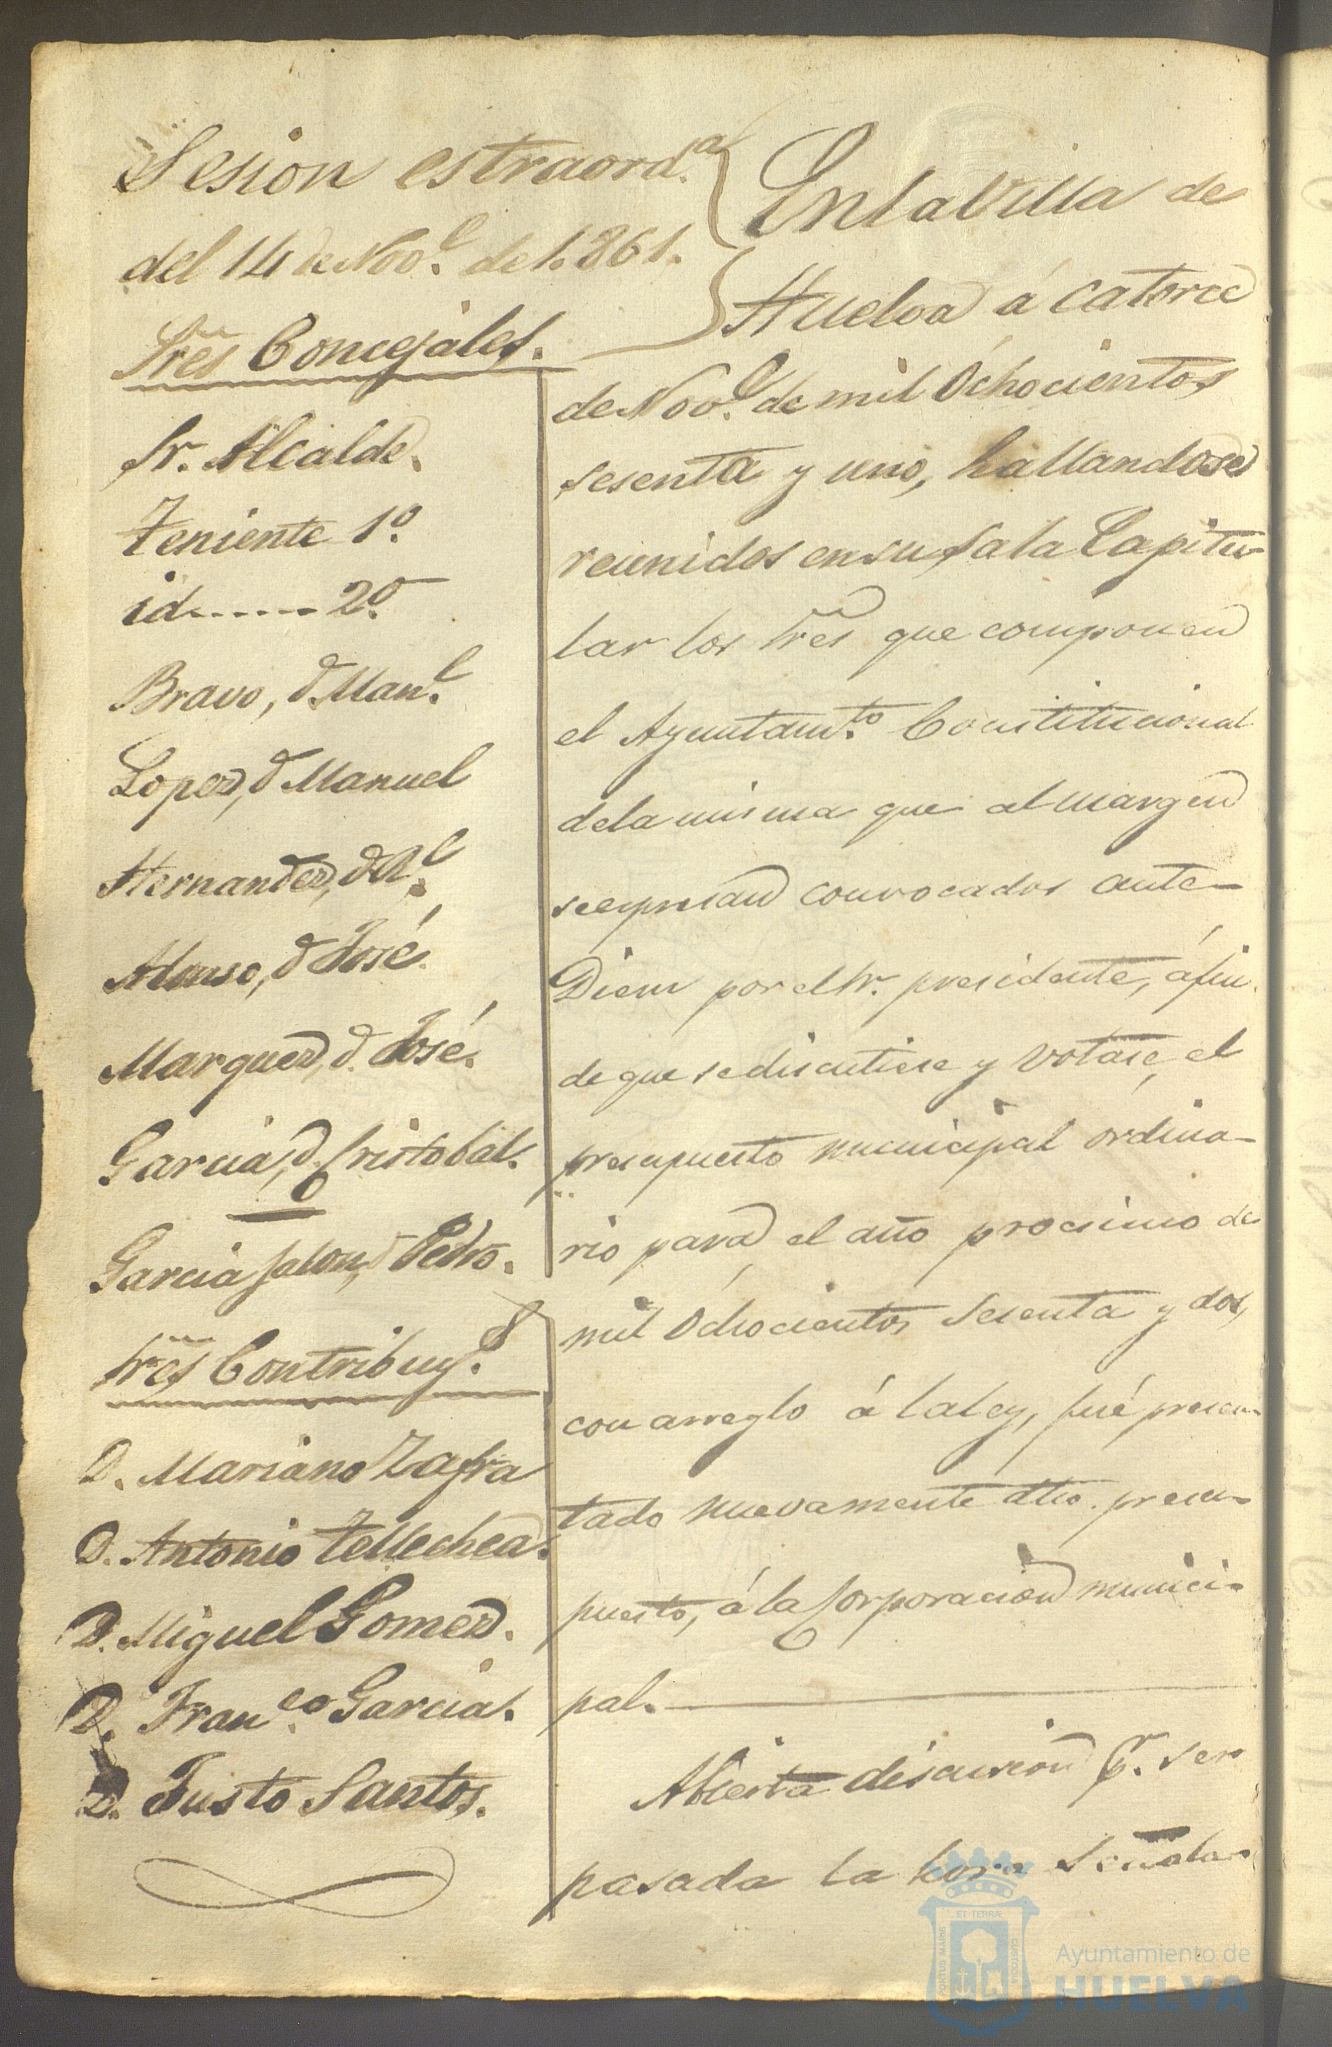 Sesion estraord.a
del 14 de Nov.e de 1.861.
Sres Concejales.
Sr. Alcalde.
Teniente 1º.
id...... 2º.
Bravo, d. Man.l
Lopez, d. Manuel
Hernandez, d. R.l
Alonso, d. José.
Marquez, d. José.
Garcia, d. Cristobal.
Garcia Jalon, d. Pedro.
Sres Contribuy.s
D. Mariano Zafra
D. Antonio Tellechea.
D. Miguel Gomez.
D. Fran.co Garcia.
D. Justo Santos.
En la Villa de
Huelva á catorce
de Nov.e de mil Ochocientos
sesenta y uno, hallandose
reunidos en su sala Capitu-
lar los Sres que componen
el Ayuntam.to Constitucional
de la misma que al margen
se espresan convocados ante-
Diem por el Sr. presidente, á fin
de que se discutiese y votase, el
presupuesto municipal ordina-
rio para el año procsimo de
mil Ochocientos Sesenta y dos,
con arreglo á la ley, fué presen-
tado nuevamente dho. presu-
puesto, á la Corporacion munici-
pal.
Abierta discusion p.r ser
pasada la hora Señala-
Ayuntamiento de
HUELVA